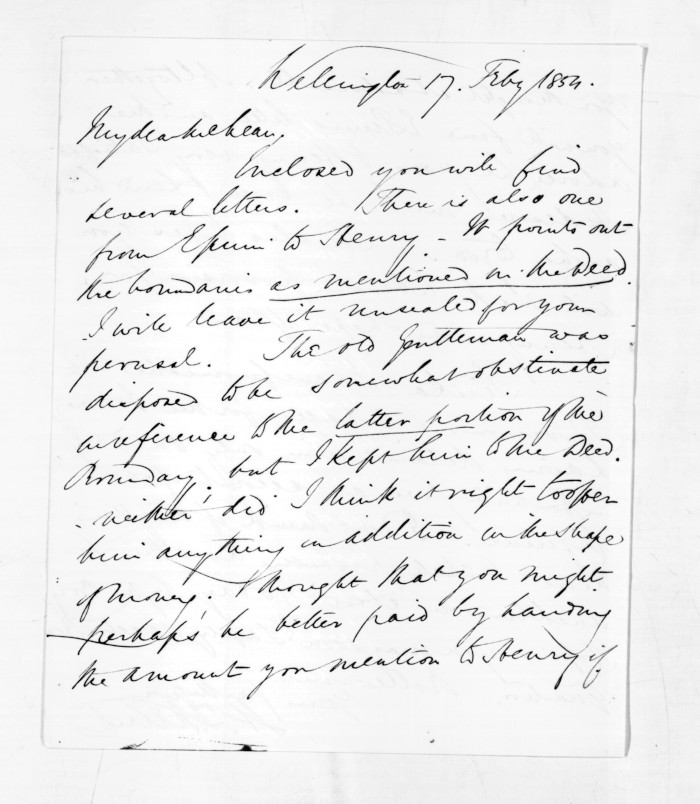 Wellington 17. Feby 1854.
My dear McLean,
Enclosed you will find
several letters. There is also one
from Epuni to Henry - It points out
the boundaries as mentioned in the Deed.
I will leave it unsealed for your
perusal. The old Gentleman was
disposed to be somewhat obstinate
in reference to the latter portion of the
Boundary, but I kept him to the Deed.
- neither did I think it right to offer
him anything in addition in the shape
of money. I thought that you might
perhaps be better paid by handing
the amount you mention to Henry if